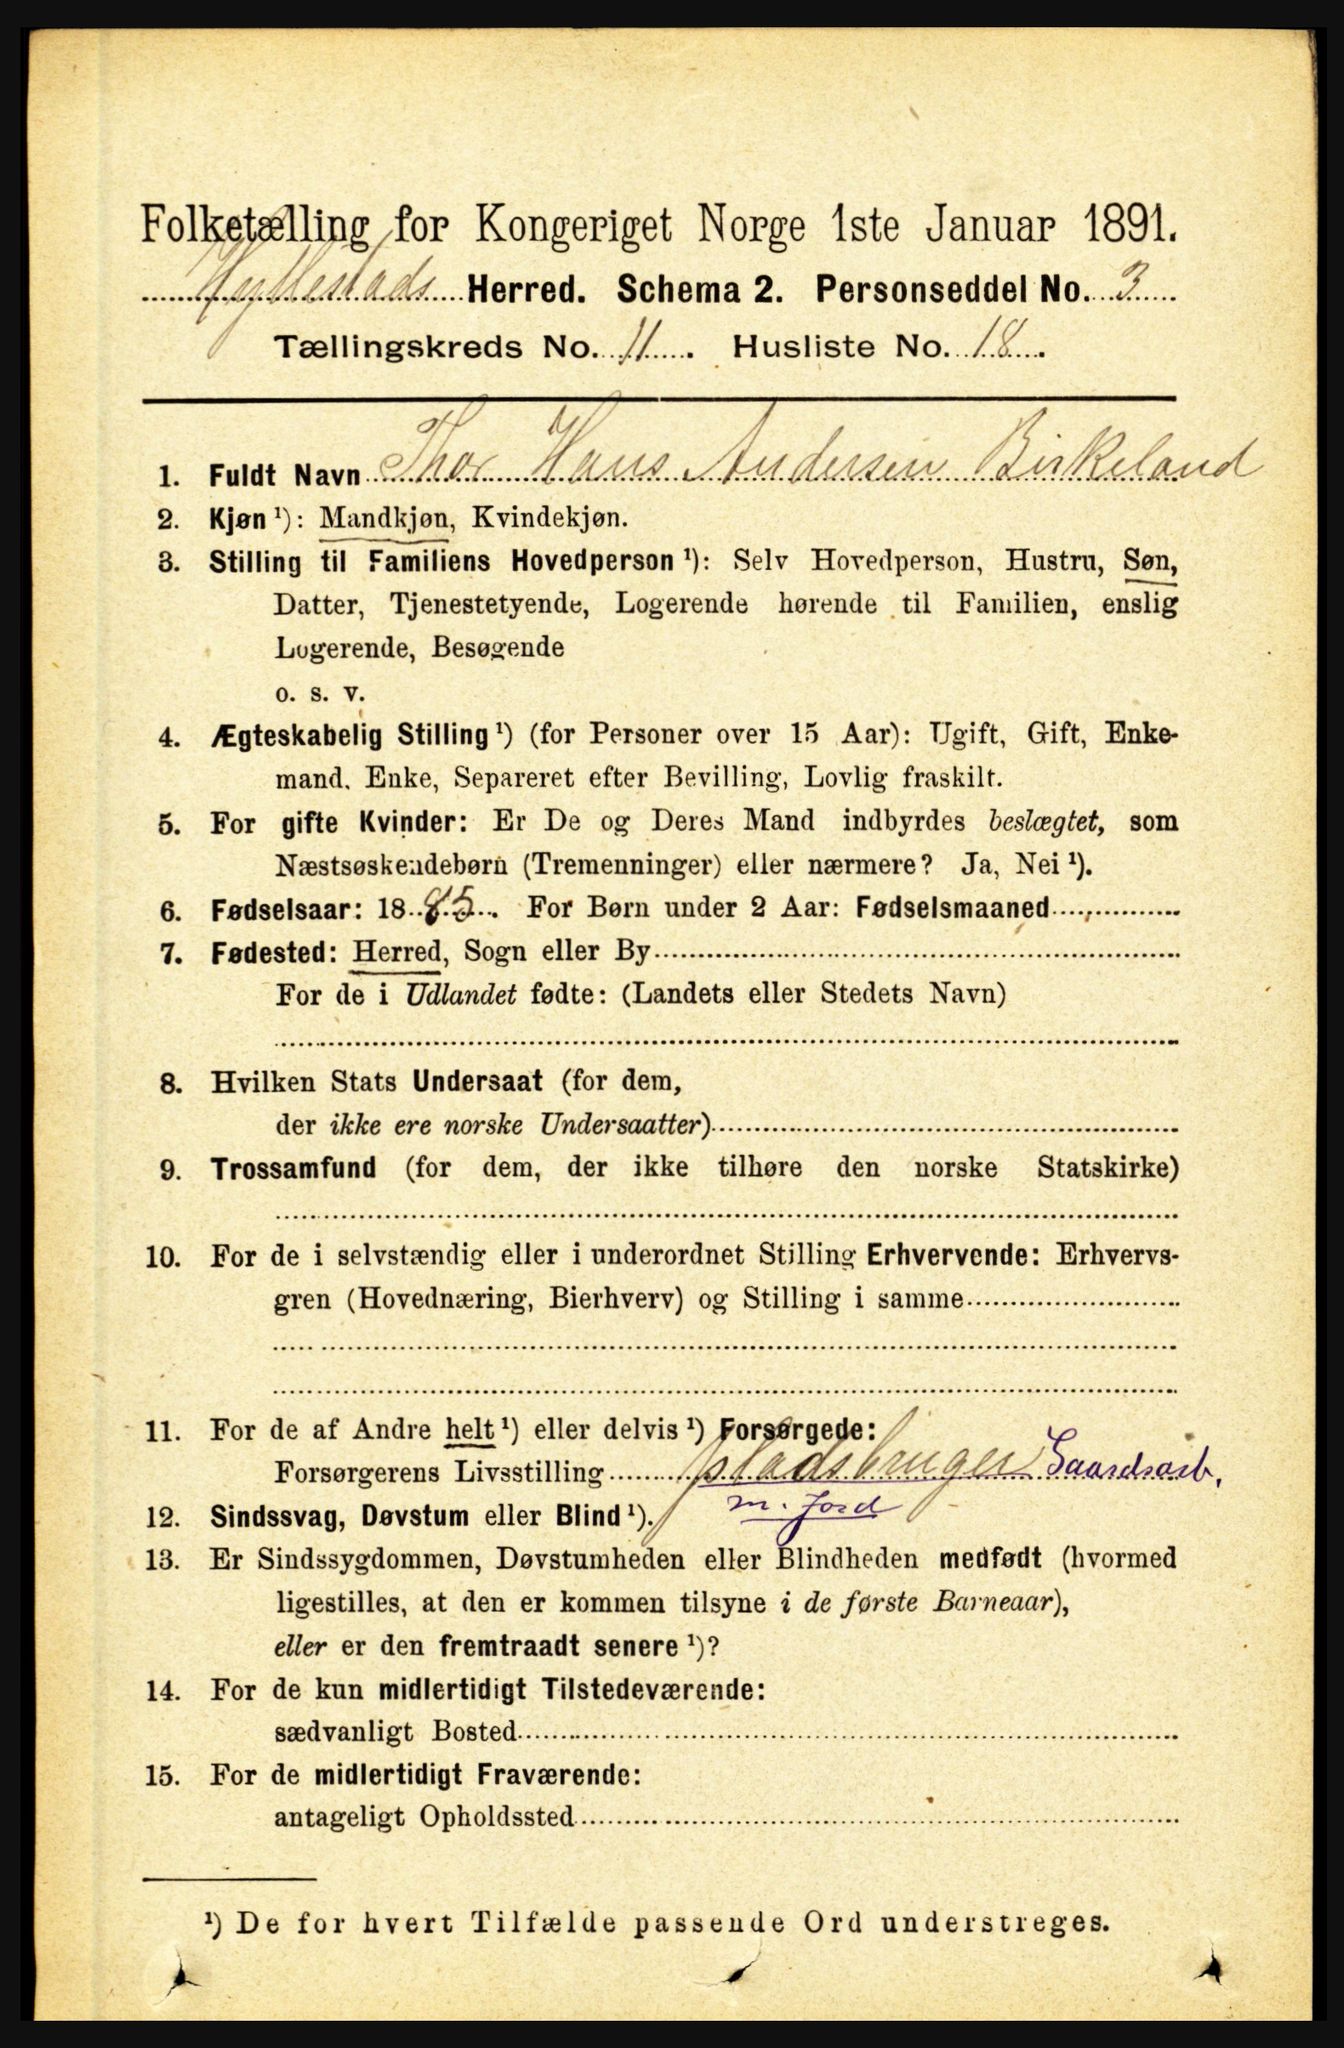 Folketælling for Kongeriget Norge 1ste Januar 1891.
Hyllestads Herred. Schema 2. Personseddel No. 3
Tællingskreds No. 11. Husliste No. 18.
1. Fuldt Navn Thor Hans Andersen Birkeland
2. Kjøn ¹): Mandkjøn, Kvindekjøn.
3. Stilling til Familiens Hovedperson ¹): Selv Hovedperson, Hustru, Søn,
Datter, Tjenestetyende, Logerende hørende til Familien, enslig
Logerende, Besøgende
o. s. v.
4. Ægteskabelig Stilling ¹) (for Personer over 15 Aar): Ugift, Gift, Enke-
mand, Enke, Separeret efter Bevilling, Lovlig fraskilt.
5. For gifte Kvinder: Er De og Deres Mand indbyrdes beslægtet, som
Næstsøskendebørn (Tremenninger) eller nærmere? Ja, Nei ¹).
6. Fødselsaar: 1885. For Børn under 2 Aar: Fødselsmaaned
7. Fødested: Herred, Sogn eller By
For de i Udlandet fødte: (Landets eller Stedets Navn)
8. Hvilken Stats Undersaat (for dem,
der ikke ere norske Undersaatter)
9. Trossamfund (for dem, der ikke tilhøre den norske Statskirke)
10. For de i selvstændig eller i underordnet Stilling Erhvervende: Erhvervs-
gren (Hovednæring, Bierhverv) og Stilling i samme
11. For de af Andre helt ¹) eller delvis ¹) Forsørgede:
Forsørgerens Livsstilling pladsbruger Gaardsarb.
m. jord
12. Sindssvag, Døvstum eller Blind ¹).
13. Er Sindssygdommen, Døvstumheden eller Blindheden medfødt (hvormed
ligestilles, at den er kommen tilsyne i de første Barneaar),
eller er den fremtraadt senere ¹)?
14. For de kun midlertidigt Tilstedeværende:
sædvanligt Bosted
15. For de midlertidigt Fraværende:
antageligt Opholdssted
¹) De for hvert Tilfælde passende Ord understreges.